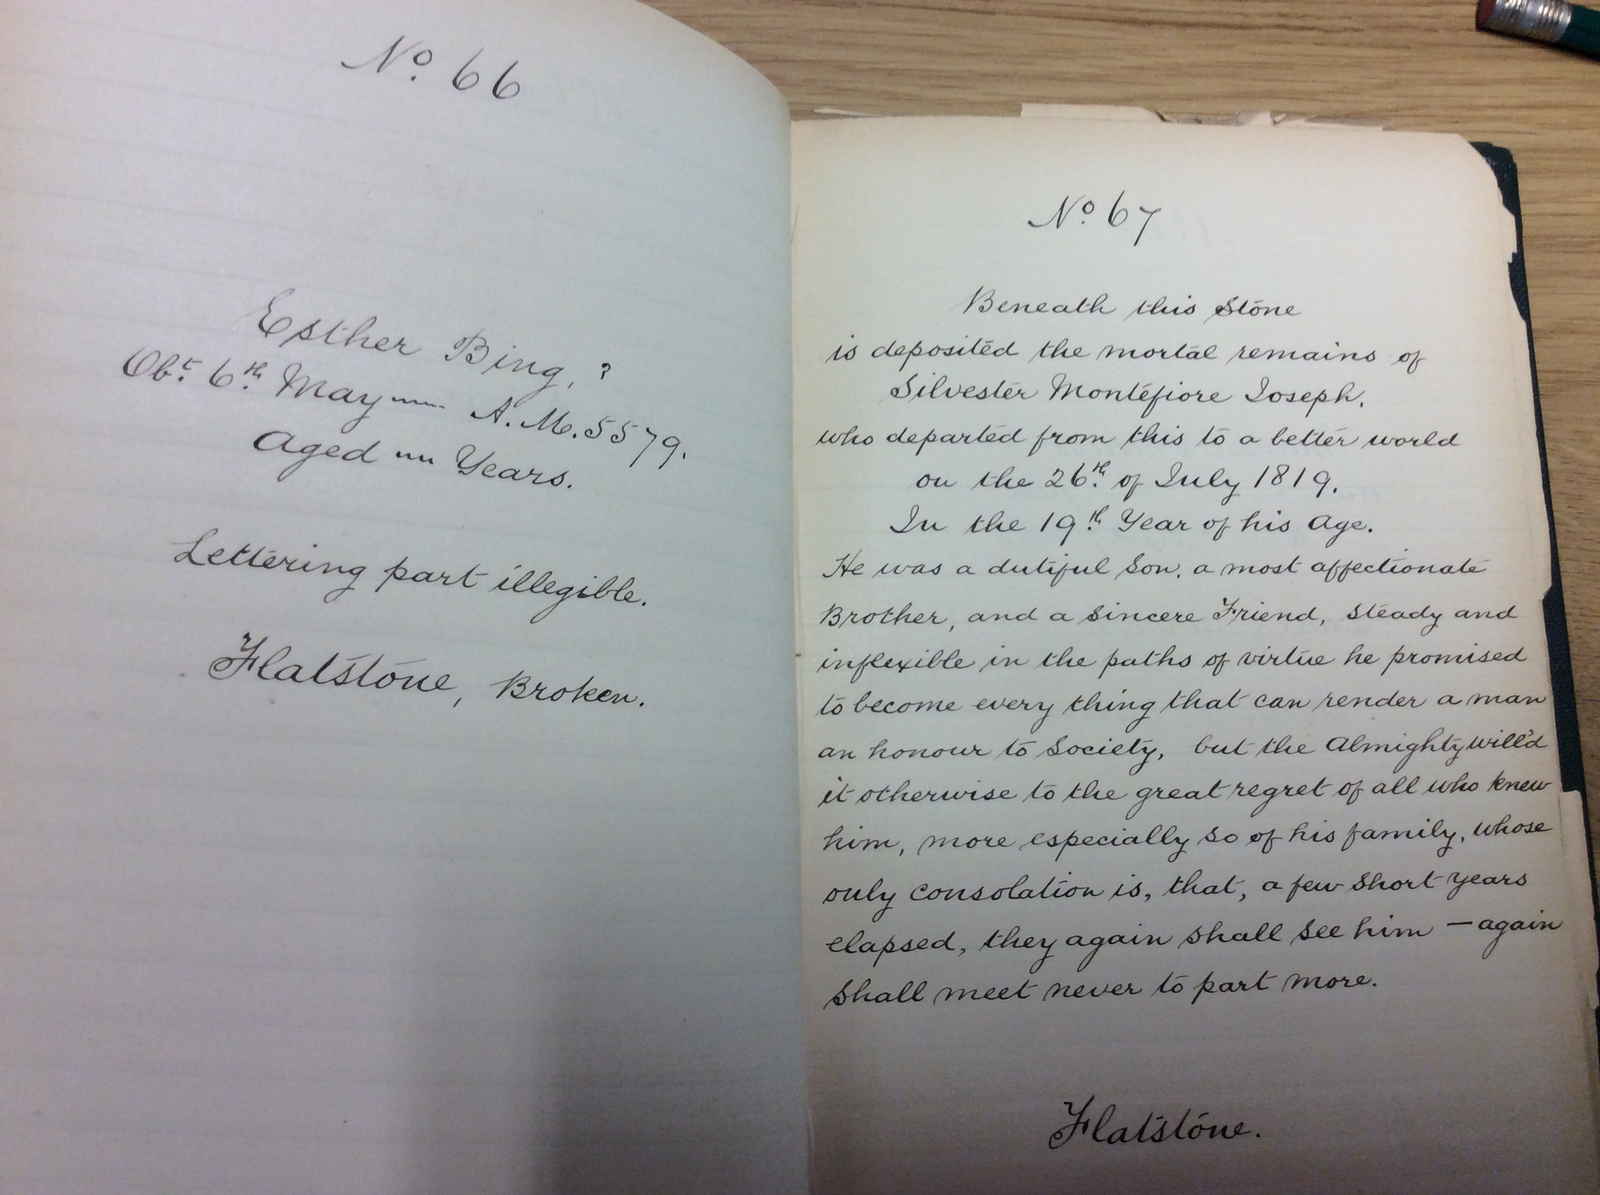 No. 66
Esther Bing, ?
Obt. 6th. May ~~~ A.M. 5579.
Aged ~~ Years.
Lettering part illegible.
Flatstone, Broken.
No. 67
Beneath this Stone
is deposited the mortal remains of
Silvester Montefiore Joseph.
who departed from this to a better world
on the 26th. of July 1819.
In the 19th. Year of his Age.
He was a dutiful Son, a most affectionate
Brother, and a sincere Friend, steady and
inflexible in the paths of virtue he promised
to become every thing that can render a man
an honour to Society, but the Almighty will'd
it otherwise to the great regret of all who knew
him, more especially so of his family, whose
only consolation is, that, a few short years
elapsed, they again shall see him — again
shall meet never to part more.
Flatstone.